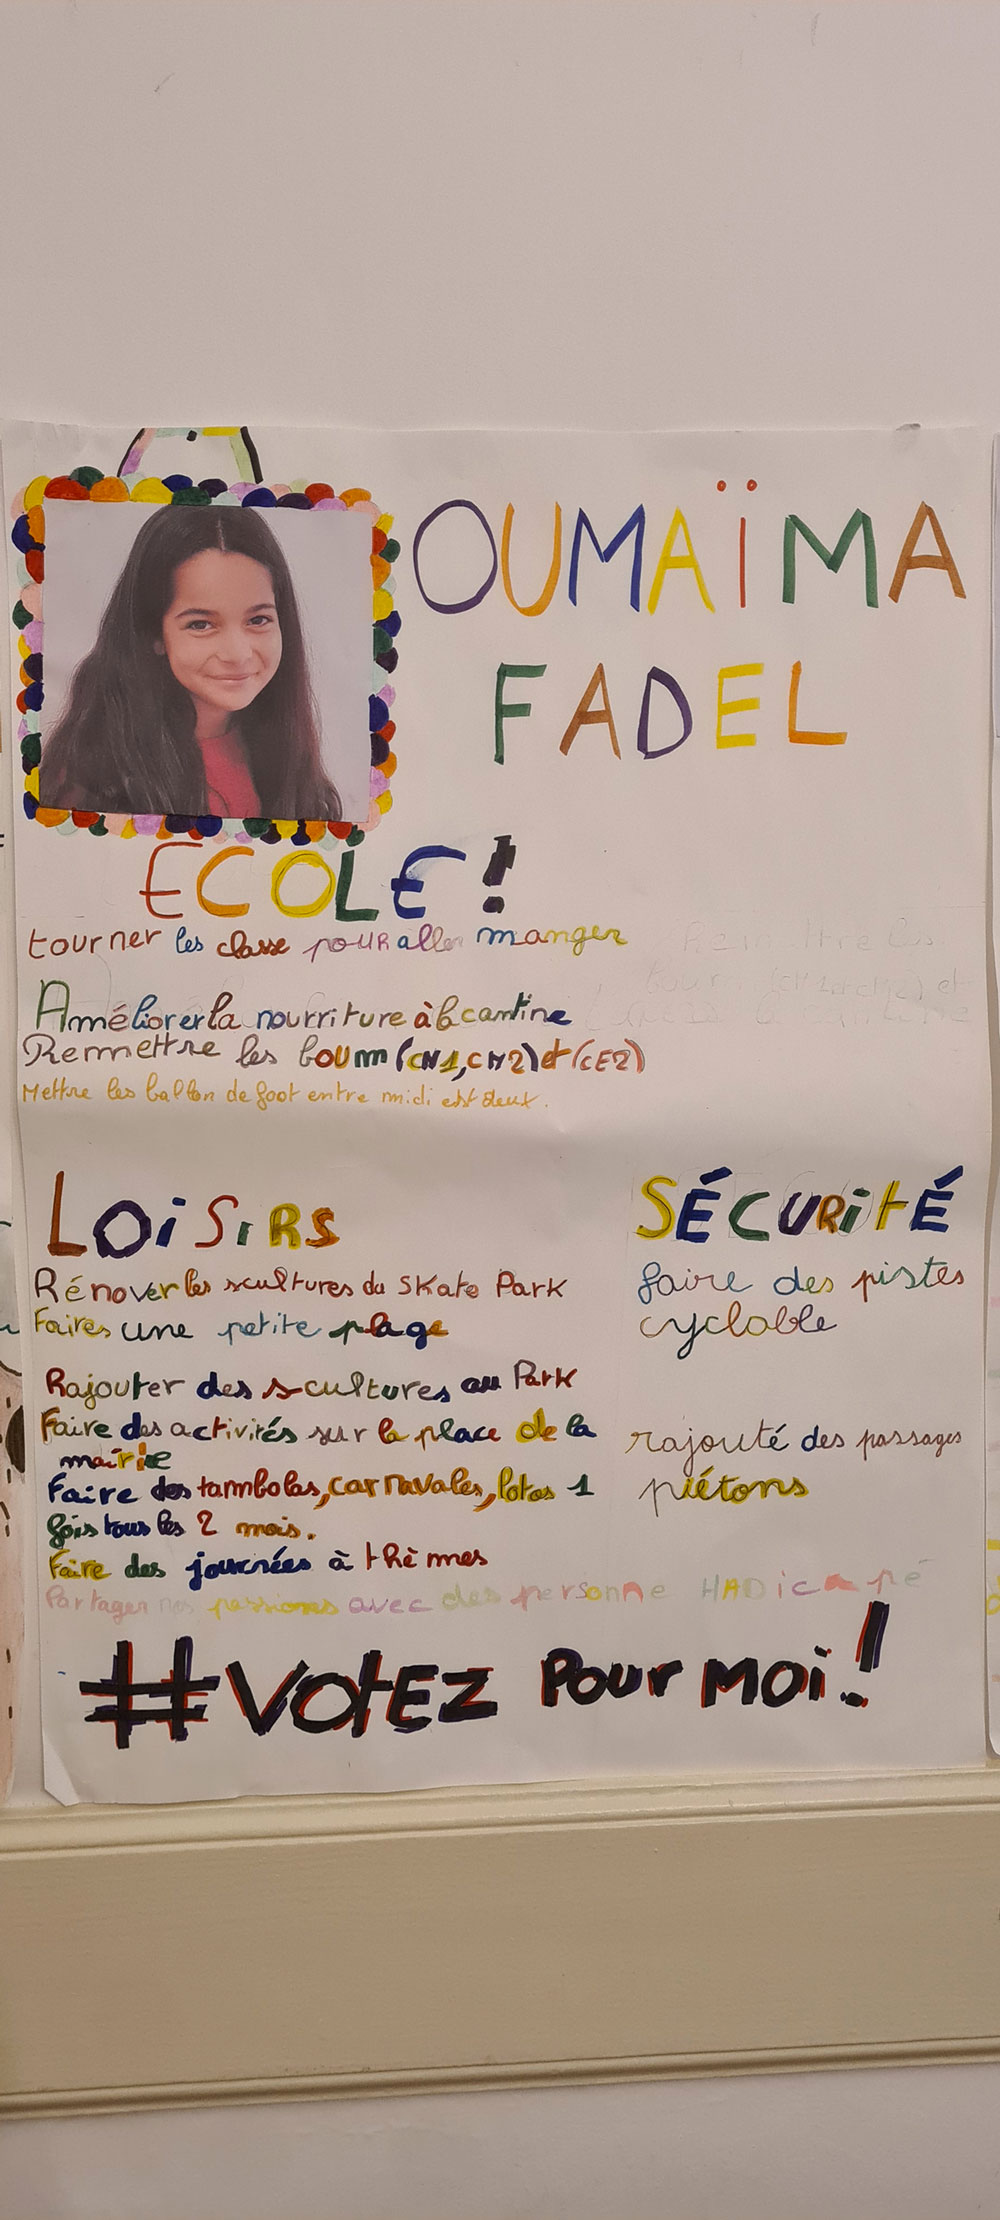 OUMAÏMA
FADEL
ECOLE !
tourner les classe pour aller manger
Améliorer la nourriture à la cantine
Remettre les boum (CM1, CM2) et (CE2)
Mettre les ballon de foot entre midi est deux.
LOISIRS
Rénover les scultures du SKate PARK
Faires une petite plage
Rajouter des scultures au PARK
Faire des activités sur la place de la
mairie
Faire des tambolas, carnavales, lotos 1
fois tous les 2 mois.
Faire des journées à thèmes
Partager nos passions avec des personne HADicapé
SÉCURITÉ
faire des pistes
cyclable
rajouté des passages
piétons
#VOTEZ POUR MOI !